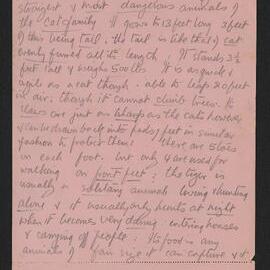 strongest & most dangerous animals of
the cat family. It grows to 13 feet long 3 feet
of this being tail. the tail is like that of cat
evenly furred all its length. It stands 3½
feet tall & weighs 500 lbs. It is as quick &
agile as a cat though - able to leap 20 feet
in air; though it cannot climb trees. Its
claws are just as sharp as the cats however
& can be drawn back into pads of feet in similar
fashion to protect them: there are 5 toes
in each foot. but only 4 are used for
walking on front feet: the tiger is
usually a solitary animal loving hunting
alone & it usually only hunts at night
when it becomes very daring entering houses
& camping of people: Its food is any
animals of fair size it can capture & it